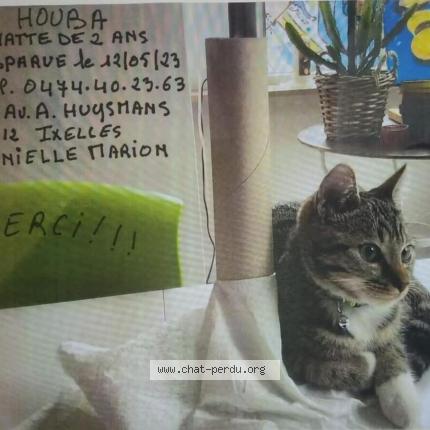 HOUBA
HATTE DE 2 ANS
SPARUE le 12/05/23
P. 0474.40.23.63
AV. A. HUYSMANS
12 IXELLES
NIELLE MARION
ERCI!!!
www.chat-perdu.org